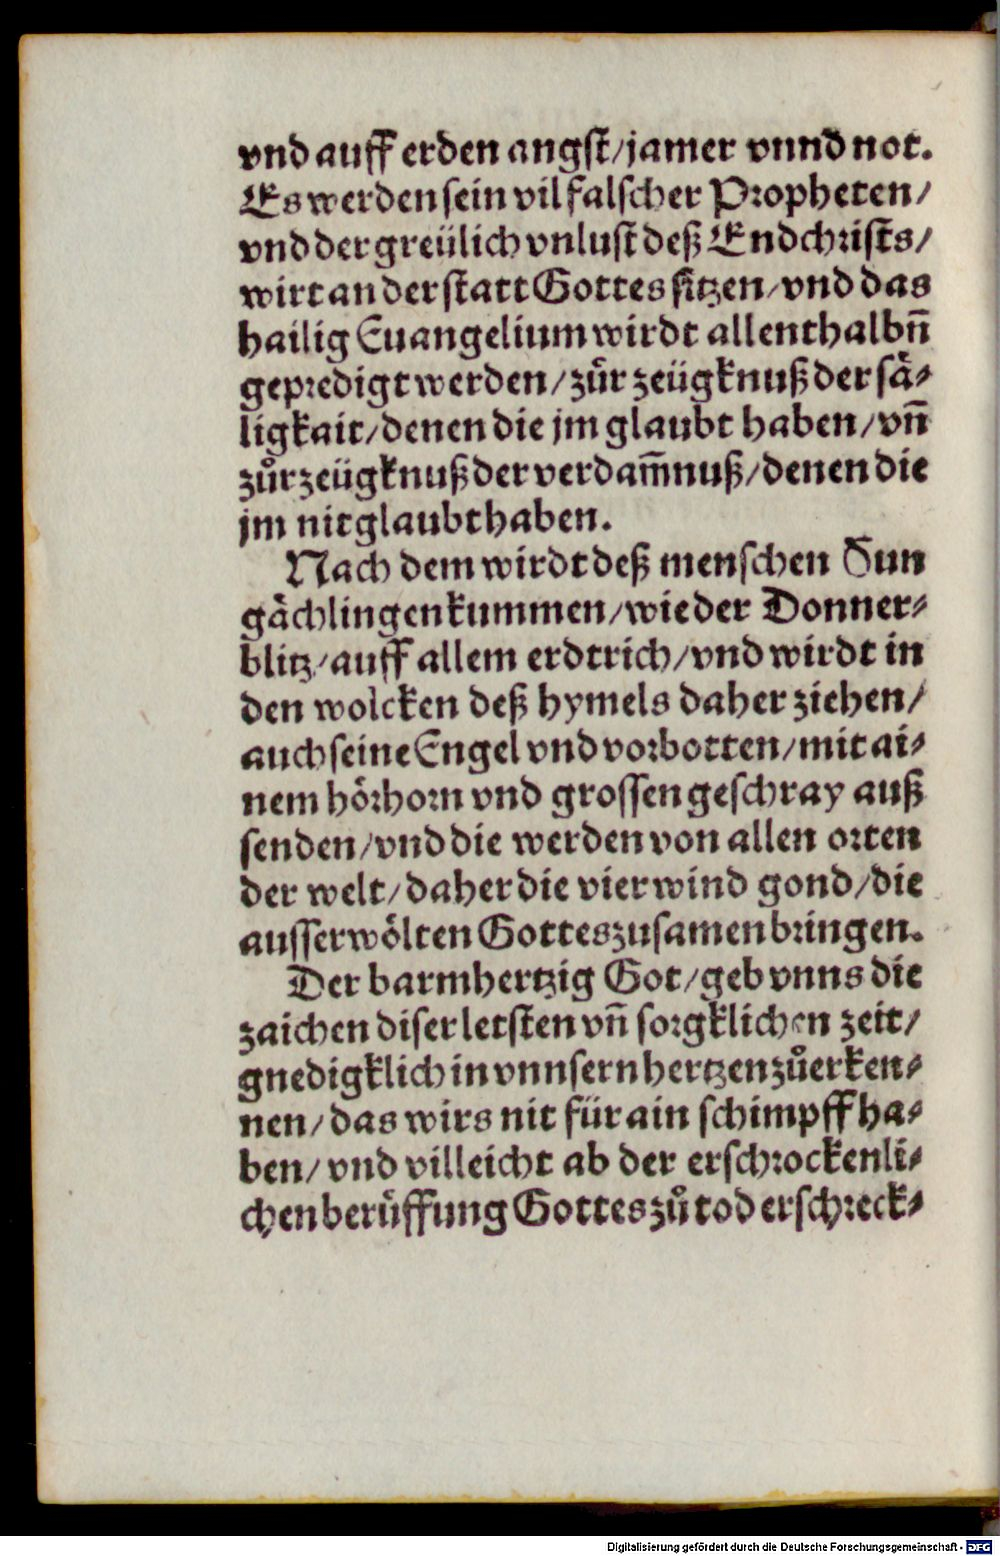 vnd auff erden angst/jamer vnnd not.
Es werden sein vil falscher Propheten/
vnd der greülich vnlust deß Endchrists/
wirt an der statt Gottes sitzen/vnd das
hailig Euangelium wirdt allenthalbn̄
gepredigt werden/zůr zeügknuß der sä⸗
ligkait/denen die jm glaubt haben/vn̄
zůr zeügknuß der verdam̄nuß/denen die
jm nit glaubt haben.
Nach dem wirdt deß menschen Sun
gächlingen kummen/wie der Donner⸗
blitz/auff allem erdtrich/vnd wirdt in
den wolcken deß hymels daher ziehen/
auch seine Engel vnd vorbotten/mit ai⸗
nem hörhorn vnd grossen geschray auß
senden/vnd die werden von allen orten
der welt/daher die vier wind gond/die
ausserwölten Gottes zusamen bringen.
Der barmhertzig Got/geb vnns die
zaichen diser letsten vn̄ sorgklichen zeit/
gnedigklich in vnnsern hertzen zůerken⸗
nen/das wirs nit für ain schimpff ha⸗
ben/vnd villeicht ab der erschrockenli⸗
chen berüffung Gottes zů tod erschreck⸗
Digitalisierung gefördert durch die Deutsche Forschungsgemeinschaft - DFG